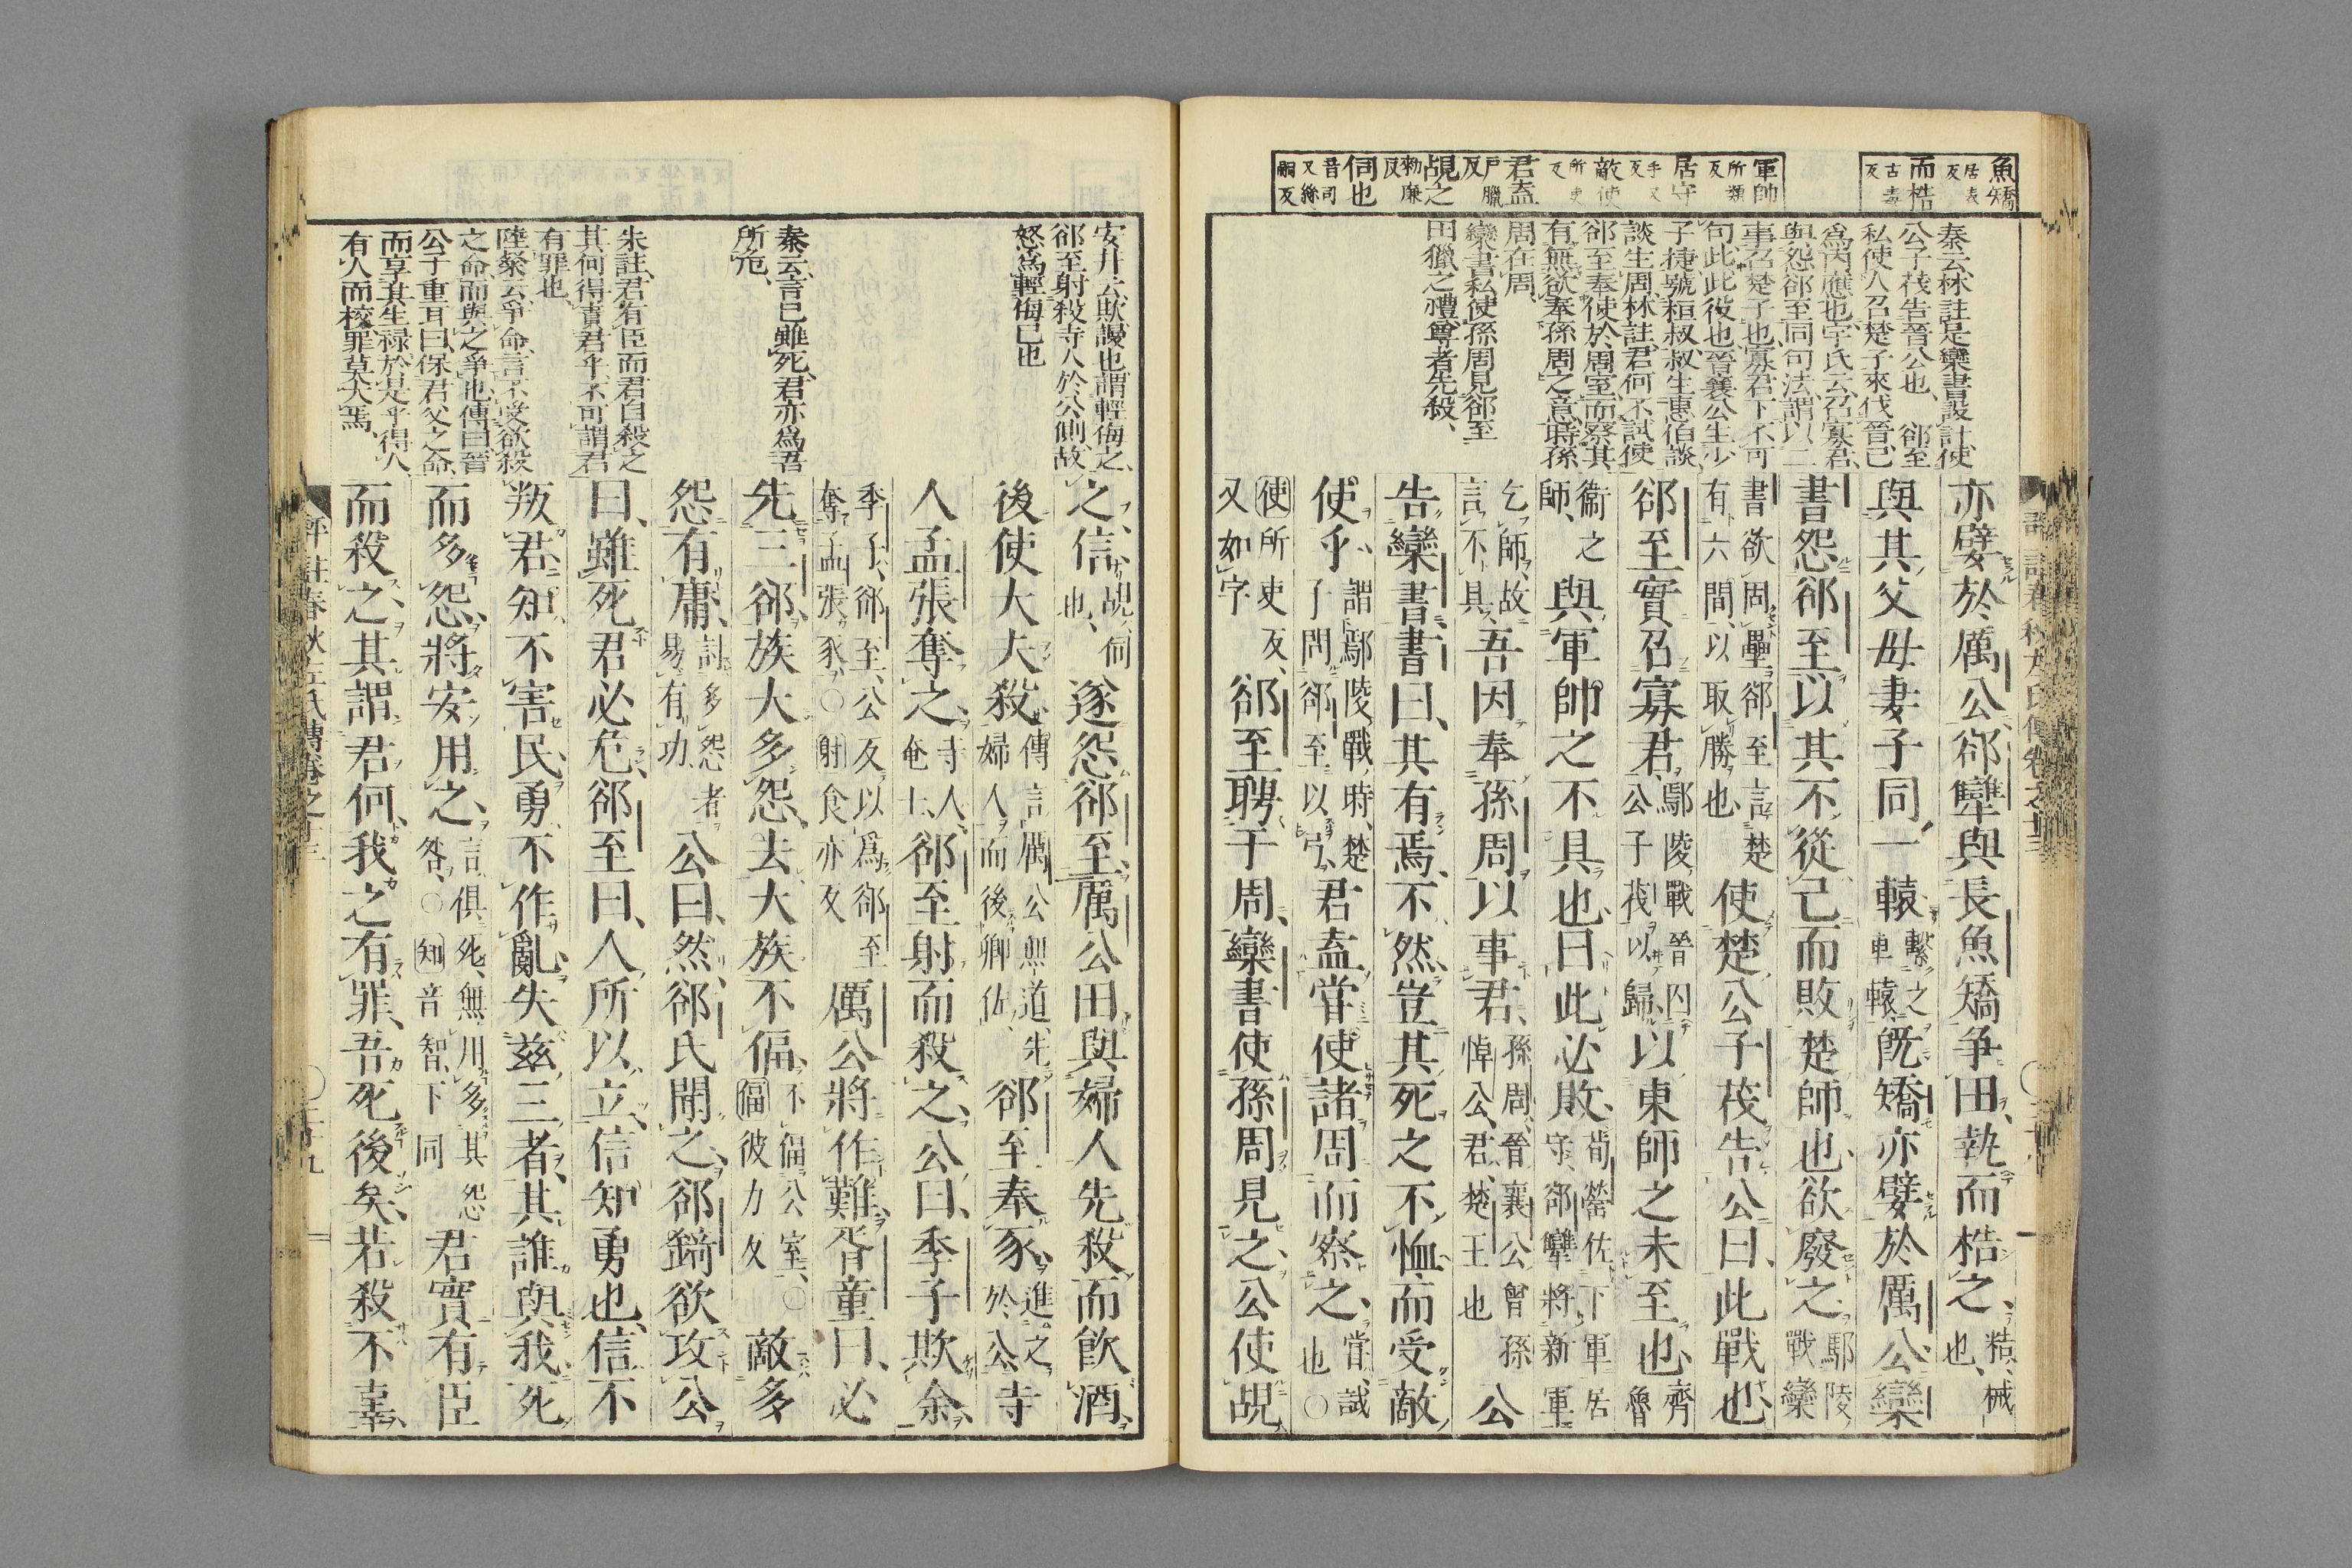 魚矯
居表
反
而梏
古毒
反
軍帥
所類
反
居守
手又
反
敵使
所吏
反
君盍
戸臘
反
覘之
勑廉
反
伺也
音司
又絲
嗣反
秦云林註是欒書設計使
公子茷告晉公也、郤至
私使人召楚子來伐晉己
爲内應也宇氏云召寡君
與怨郤至同句法謂以二
事召楚子也寡君下不可
句此此役也晉襄公生少
子捷號桓叔叔生惠伯談
談生周林註君何不試使
郤至奉使於周室而察其
有無欲奉孫周之意時孫
周在周、
欒書私使孫周見郤至
田獵之禮尊者先殺、
亦嬖於厲公郤犨與長魚矯争田、執而梏之、梏、械也、
與其父母妻子同一轅繫之車轅、既矯亦嬖於厲公欒
書怨郤至以其不從己而敗楚師也、欲廢之鄢陵戰欒
書欲固壘郤至言楚有六間、以取勝也使楚公子茷告公曰、此戰也、
郤至實召寡君、鄢陵戰晉囚公子茷以歸以東師之未至也、齊魯
衞之師、與軍帥之不具也、曰此必敗、荀罃佐下軍居守、郤犨將新軍
乞師、故言不具吾因奉孫周以事君、孫周晉襄公曾孫悼公君、楚王也公
告欒書、書曰、其有焉、不然豈其死之不恤、而受敵
使乎、謂鄢陵戰時、楚子問郤至以弓、君盍嘗使諸周而察之、嘗、試也〇
使所吏反、又如字郤至聘于周、欒書使孫周見之公使覘
安井云欺謾也謂輕侮之、
郤至射殺寺人於公側、故
怒爲輕侮己也
秦云言已雖死、君亦爲吾
所危、
朱註、君有臣而君自殺之
其何得責君乎、不可謂君
有罪也、
陸粲云爭命、言不受欲殺
之命、而與之爭也、傳曰、晉
公子重耳曰保君父之命、
而享其生祿、於是乎得人、
有人而校罪莫大焉、
之、信、覘、伺也、遂怨郤至、厲公田與婦人先殺而飲酒、
後使大夫殺、傳言厲公無道先婦人而後卿佐、郤至奉豕、進之於公、寺
人孟張奪之、寺人、奄士、郤至射而殺之、公曰、季子欺余、
季子、郤至、公反以爲郤至奪孟張豕、〇射食亦反厲公將作難、胥童曰、必
先三郤、族大多怨、去大族不偪、不偪公室、〇偪彼力反敵多
怨有庸、討多怨者易有功公曰、然、郤氏聞之、郤錡欲攻公、
曰、雖死君必危、郤至曰、人所以立、信知勇也、信不
叛君、知不害民、勇不作亂、失玆三者、其誰與我、死
而多怨、將安用之、言俱死、無用多其怨咎、〇知音智、下同君實有臣
而殺之、其謂君何、我之有罪、吾死後矣、若殺不辜、